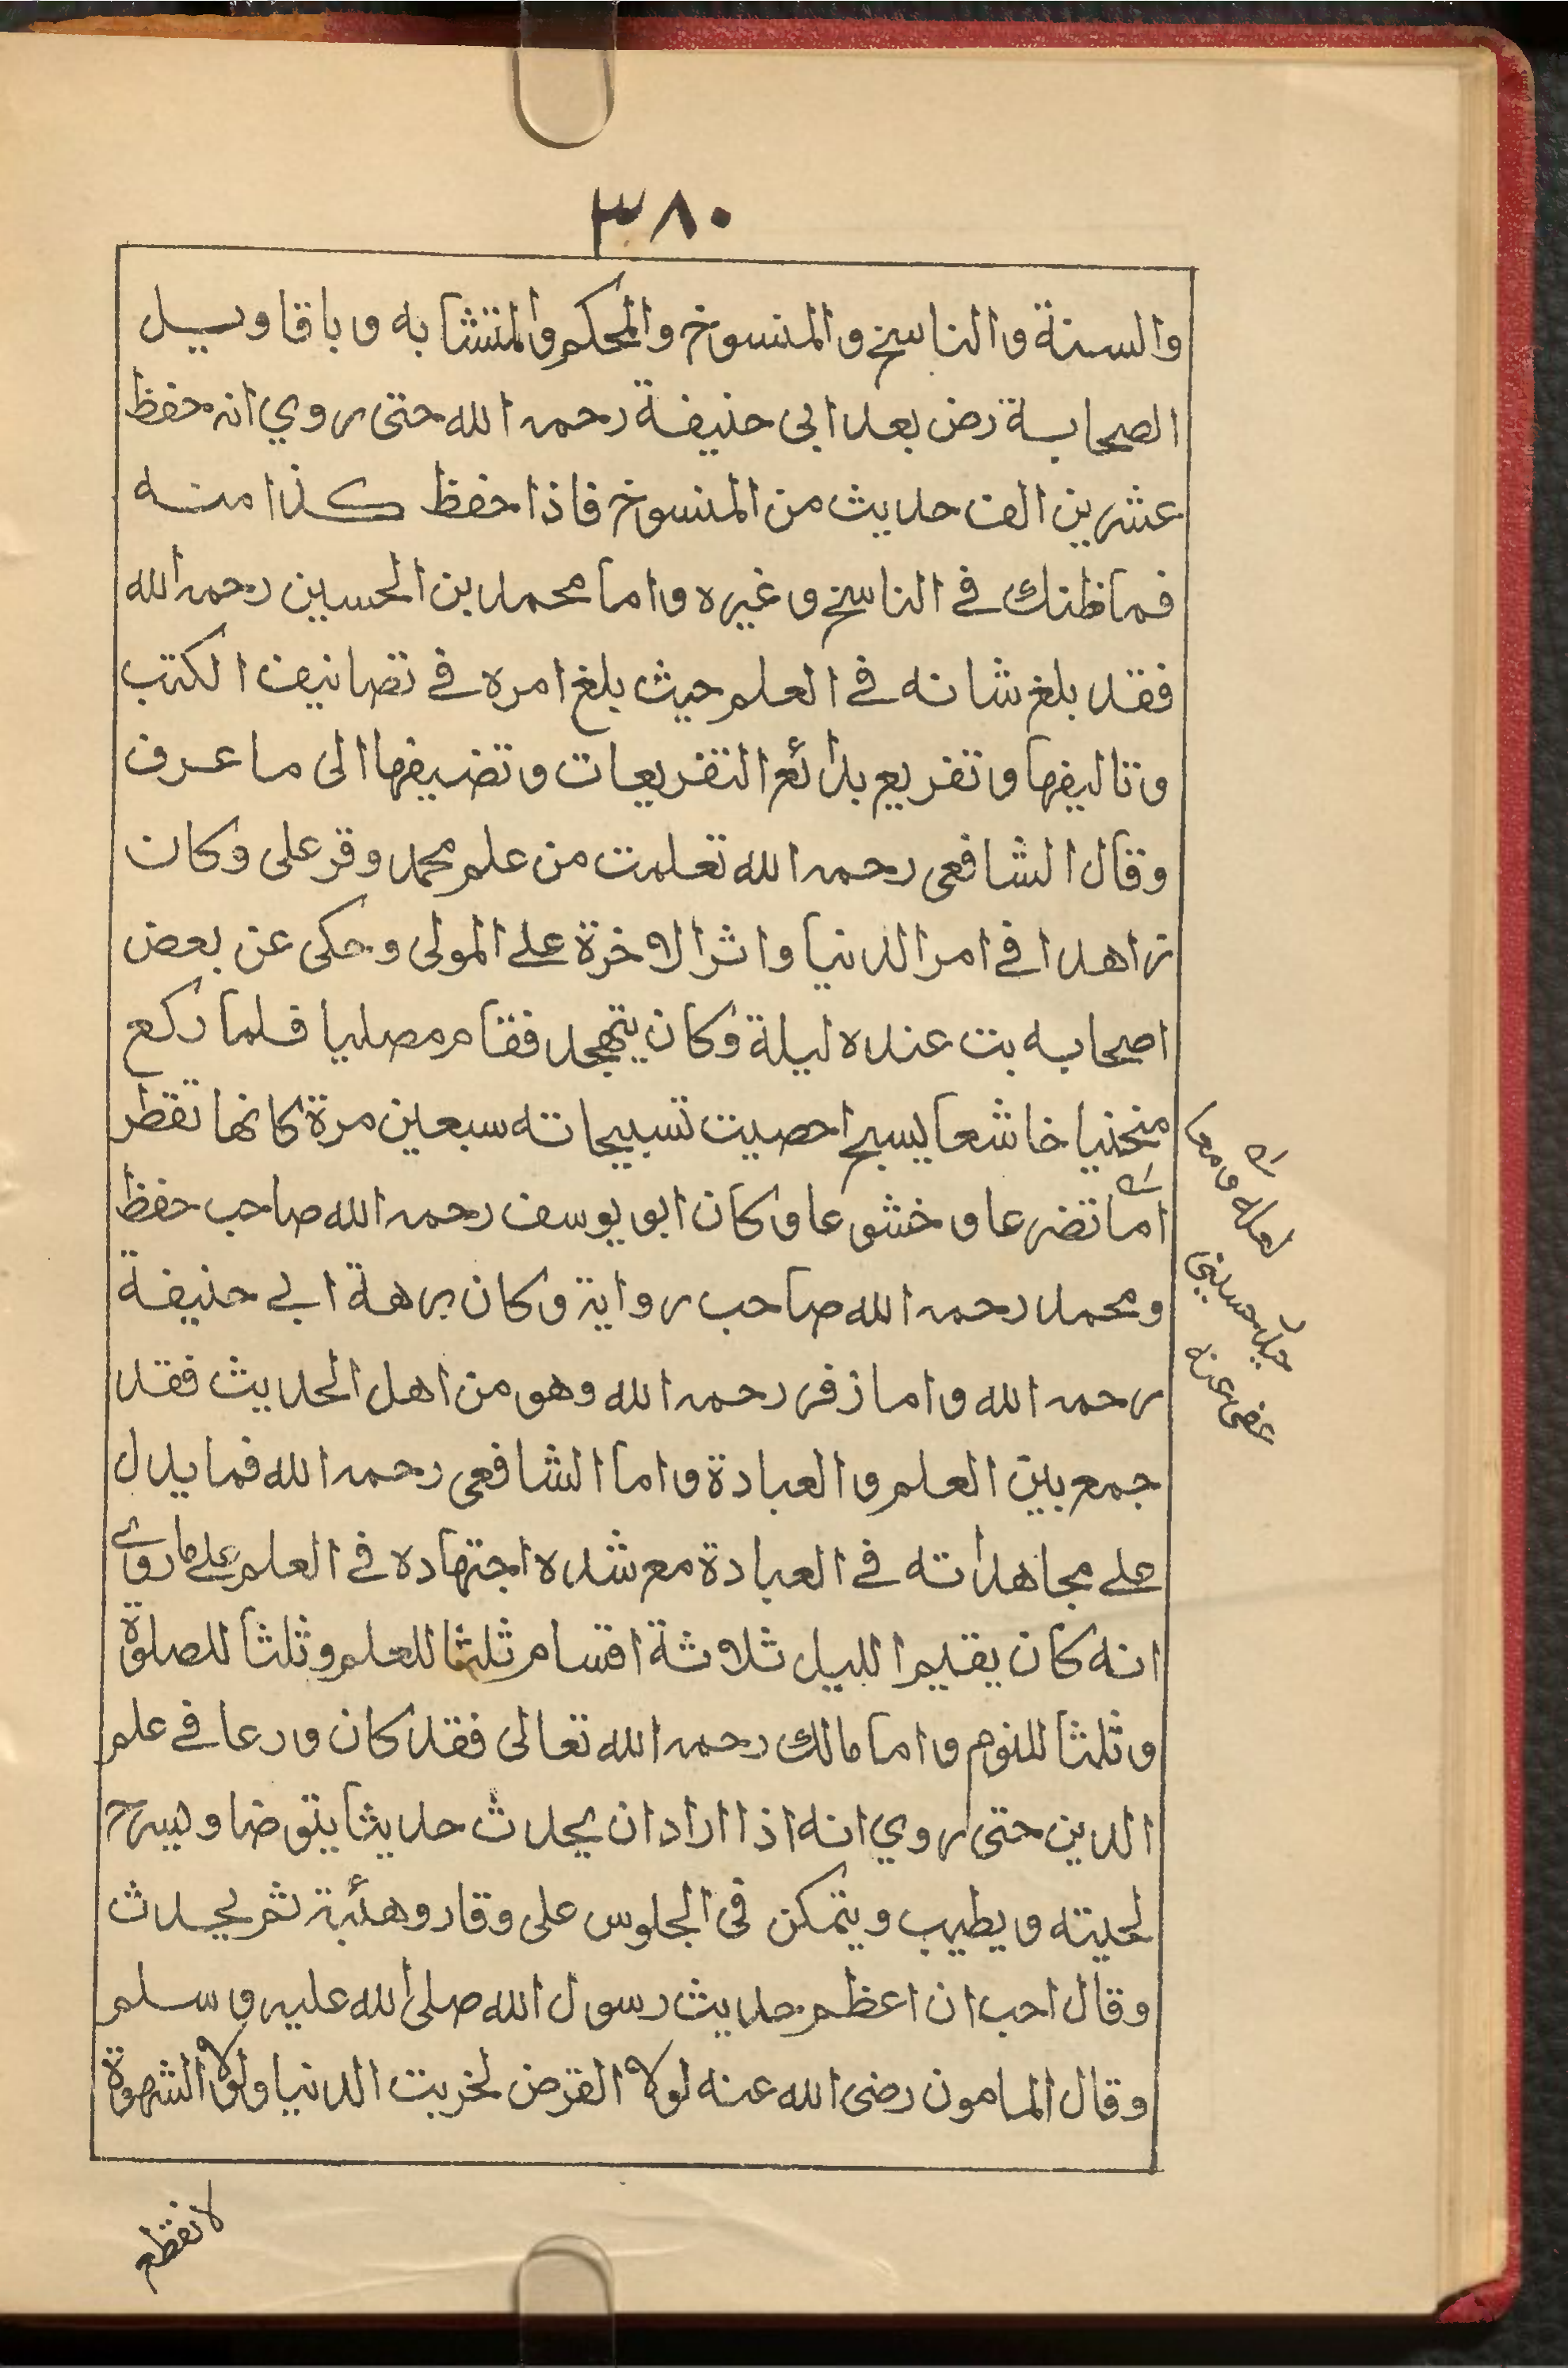 ٣٨٠
والسنة والناسخ والمنسوخ والمحكم والمتشابه وباقاويل
الصحابة رض بعد ابى حنيفة رحمه الله حتى روي انه حفظ
عشرين الف حديث من المنسوخ فاذا حفظ كذا منه
فما ظنك في الناسخ وغيره واما محمد بن الحسين رحمه الله
فقد بلغ شانه في العلم حيث بلغ امره في تصانيف الكتب
وتاليفها وتفريع بدائع التفريعات وتضيفها الى ما عرف
وقال الشافعى رحمه الله تعلمت من علم محمد وقر على وكان
زاهدا في امر الدنيا واثر الاخرة على المولى وحكى عن بعض
اصحابه بت عنده ليلة وكان يتهجد فقام مصليا فلما ركع
منحنيا خاشعا يسبح احصيت تسبيحاته سبعين مرة كانها تقطر
اما تضرعا وخشوعا وكان ابو يوسف رحمه الله صاحب حفظ
ومحمد رحمه الله صاحب رواية وكان برهة ابي حنيفة
رحمه الله واما زفر رحمه الله وهو من اهل الحديث فقد
جمع بين العلم والعبادة واما الشافعى رحمه الله فما يدل
على مجاهداته في العبادة مع شده اجتهاده في العلم على ماروى
انه كان يقليم الليل ثلاثة اقسام ثلثا للعلم وثلثا للصلوة
وثلثا للنوم واما مالك رحمه الله تعالى فقد كان ورعا في علم
الدين حتى روي انه اذا اراد ان يحدث حديثا يتوضا ويسرح
لحيته ويطيب ويتمكن فى الجلوس على وقار وهئبة ثم يحدث
وقال احب ان اعظم حديث رسول الله صلى الله عليه وسلم
وقال المامون رضى الله عنه لولا القرض لخربت الدنيا ولولا الشهوة
لانقطع